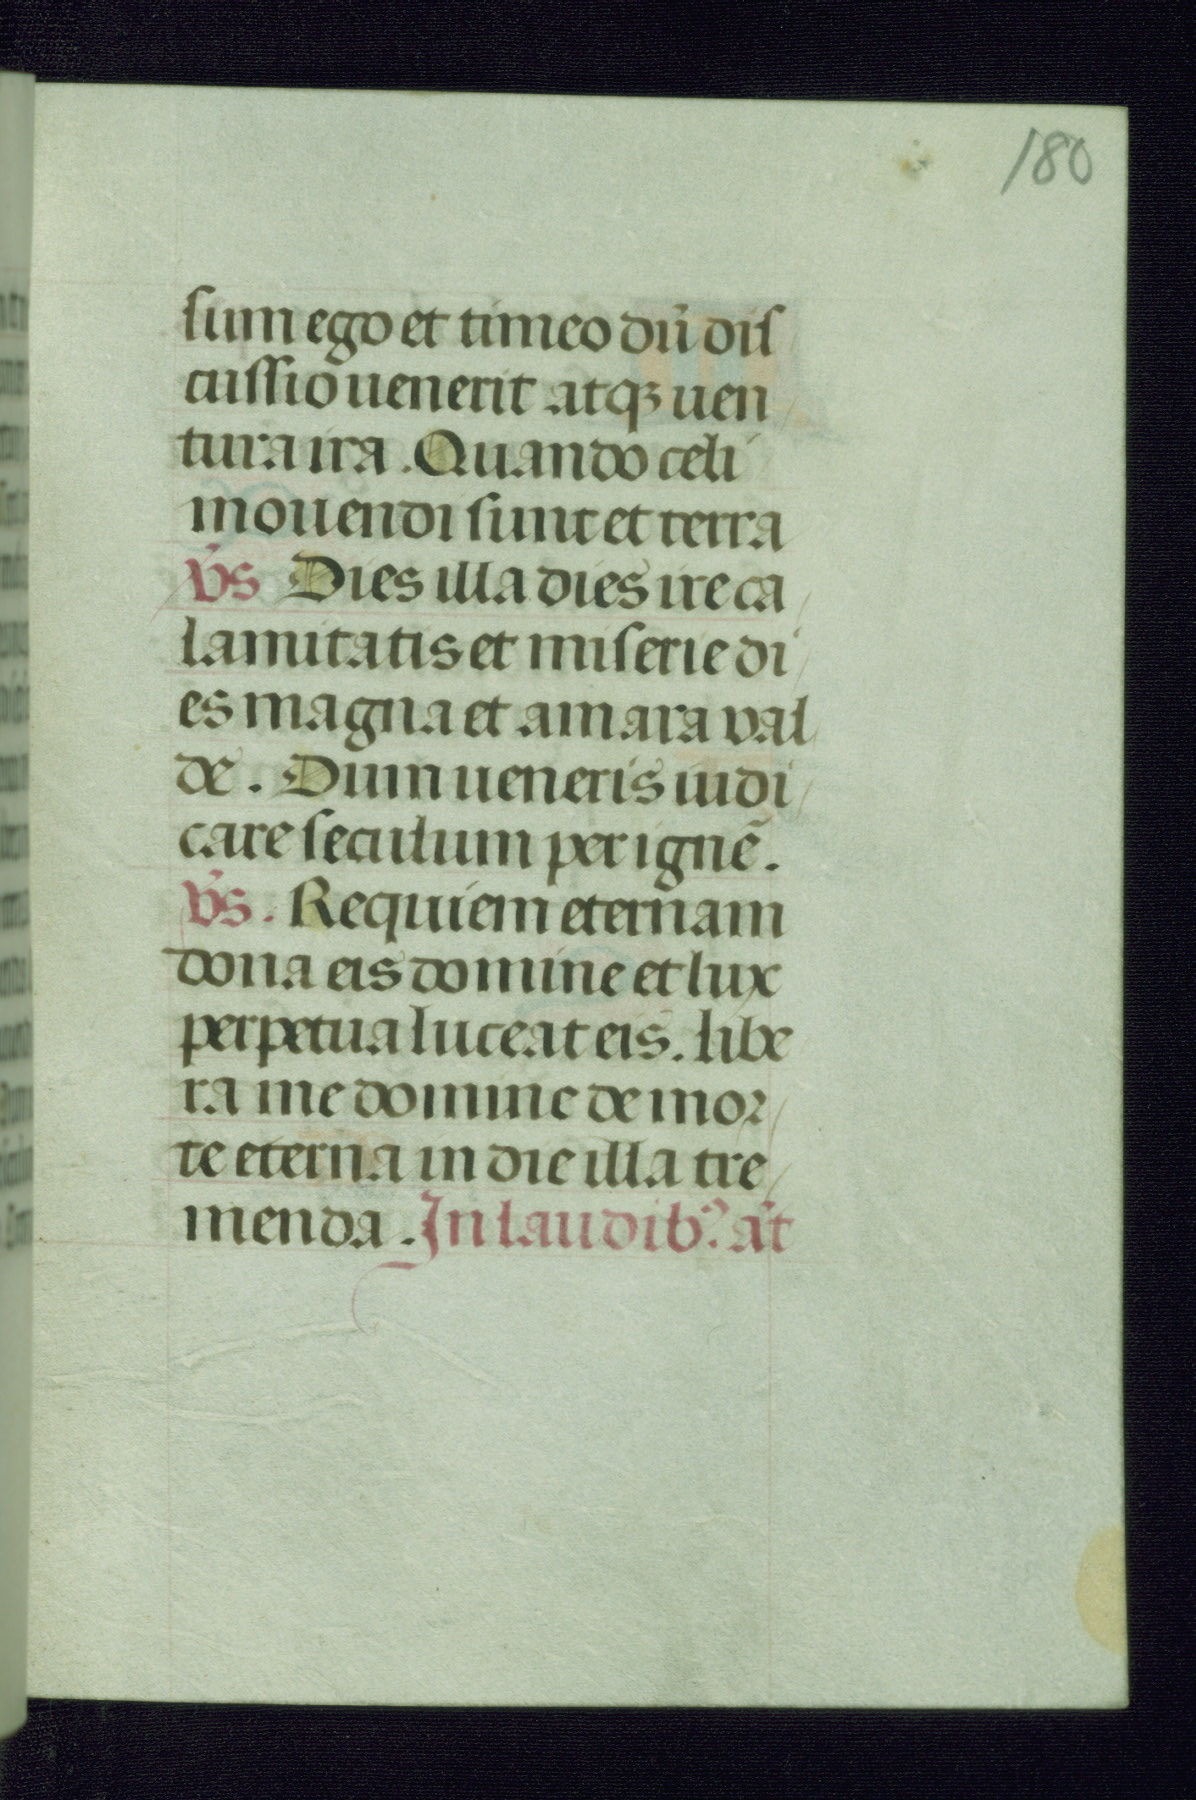 180
sum ego et timeo dũ dis
cussio uenerit atqꝫ uen
tura ira. Quando celi
mouendi sunt et terra
v̾s Dies illa dies ire ca
lamitatis et miserie di
es magna et amara val
de. Dum ueneris iudi
care seculum per ignẽ.
v̾s. Requiem eternam
dona eis domine et lux
perpetua luceat eis. libe
ra me domine de mor
te eterna in die illa tre
menda. In laudibꝰ. añt